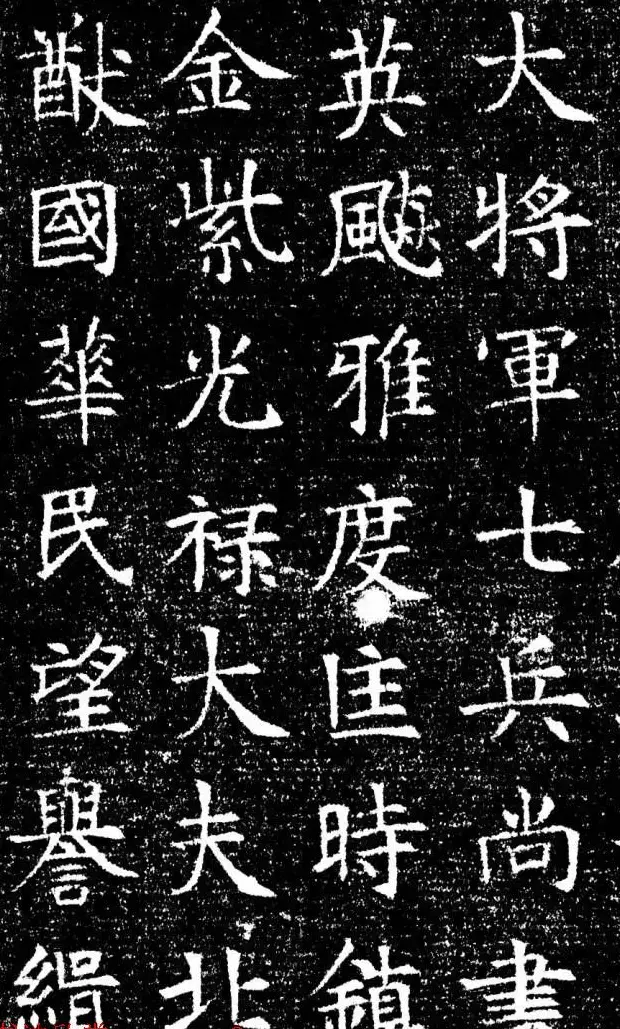 大將軍七兵尚書
英飈雅度匡時鎮
金紫光禄大夫北
猷國華民望譽緝